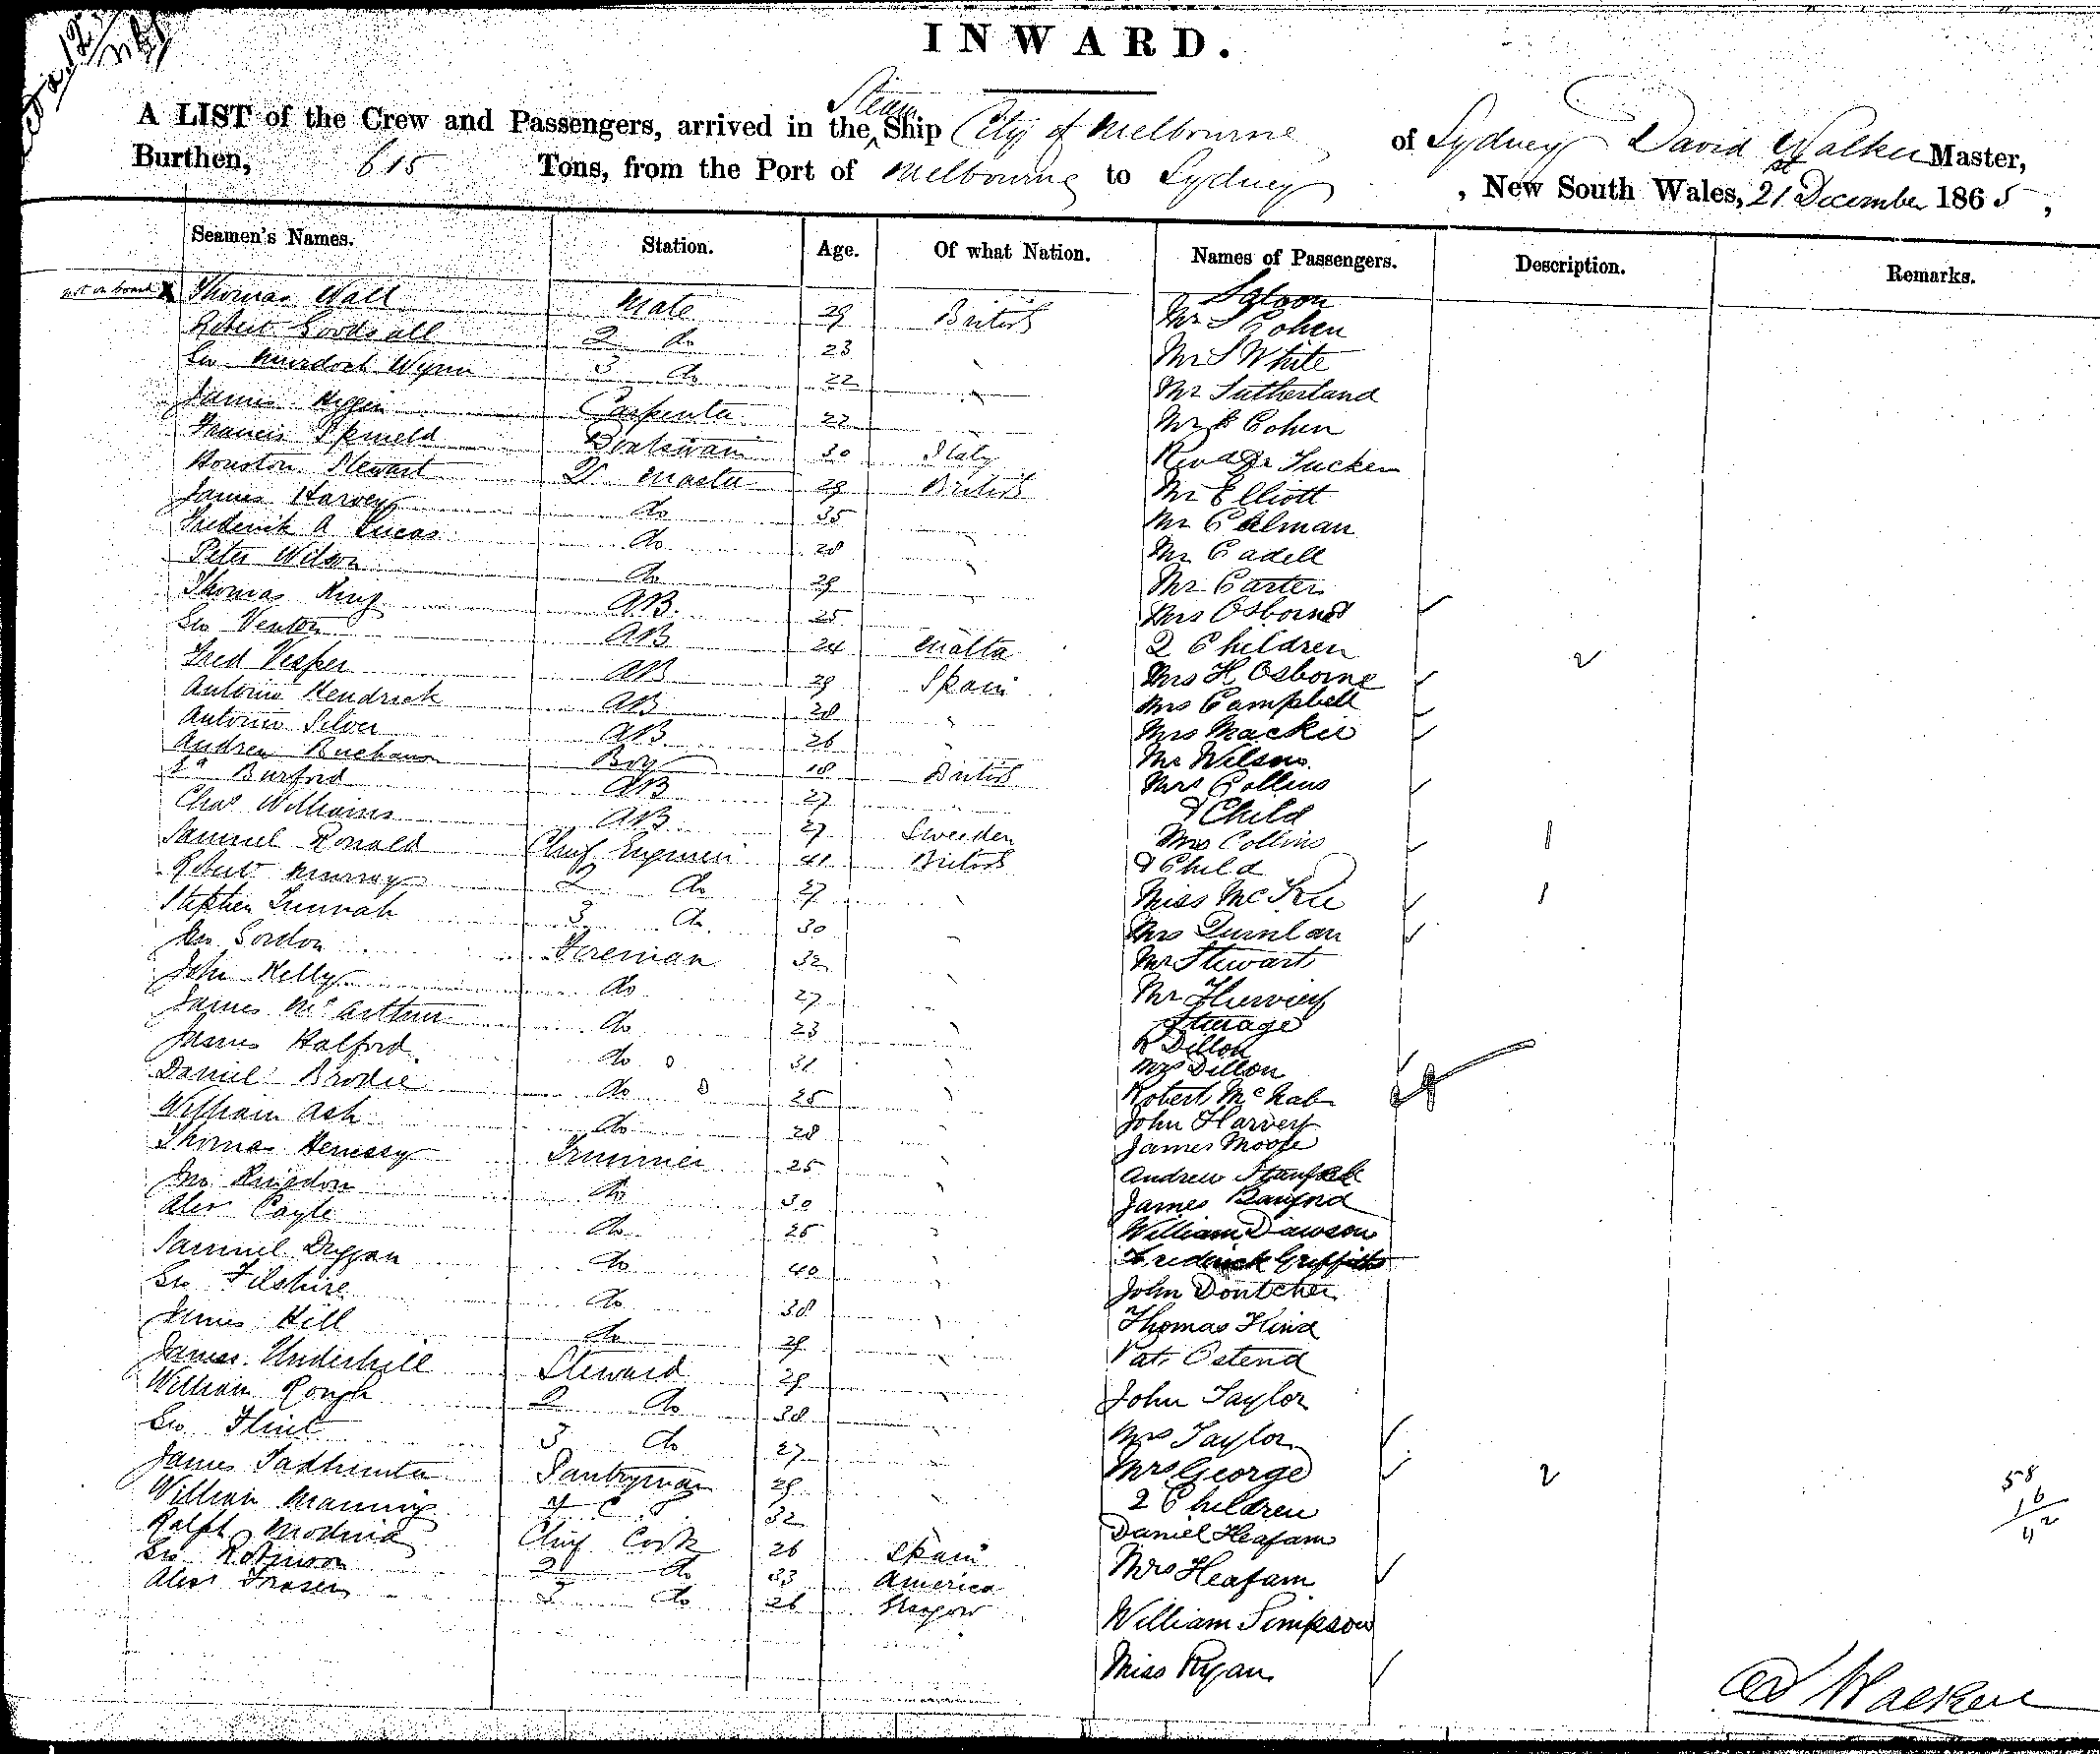 INWARD.
A LIST of the Crew and Passengers, arrived in the Steam Ship City of Melbourne of Sydney David Walker Master,
Burthen, 615 Tons, from the Port of Melbourne to Sydney, New South Wales, 21st December 1865,
Seamen's Names. Station. Age. Of what Nation. Names of Passengers. Description. Remarks.
not on board X Thomas Wall Mate 29 British
Robert Goodsall 2 do 23
Geo Murdoch Wynn 3 do 22
James Carpenter 22
Francis Boatswain 30 Italy
Houston Stewart Qr Master 29 British
James Harvey do 35
Frederick A Lucas do 28
Peter Wilson do 29
Thomas King AB. 25
Geo Venton AB 24 Malta
Fred Vesper AB 29 Spain
Antonio Kendrick AB 28
Antonio Silver AB 26
Andrew Buchanan Boy 18 British
Burford AB 27
Chas Williams AB 27 Sweeden
Samuel Ronald Chief Engineer 41 British
Robert Murray 2 do 27
Stephen Tunnah 3 do 30
Jno Gordon Fireman 32
John Kelly do 27
James McArthur do 23
James Halford do 31
Daniel Brodie do 25
William Ash do 28
Thomas Henessy Trimmer 25
Jno Kingdon do 30
Alex Coyle do 25
Samuel Duggan do 40
Geo Filshire do 38
James Hill do 29
James Underhill Steward 29
William Rough 2 do 38
Geo Flint 3 do 27
James Pantryman 29
William Manning 32
Ralph Modina Chief Cook 26 Spain
Geo Robinson 2 do 33 America
Alexr Fraser 3 do 26 Glasgow
Saloon
Mr S Cohen
Mr S White
Mr Sutherland
Mr Cohen
Revd Dr Tucker
Mr Elliott
Mr Calman
Mr Cadell
Mr Carter
Mrs Osborne
2 Children 2
Mrs H Osborne
Mrs Campbell
Mrs Mackie
Mr Wilson
Mrs Collins
& Child
Mrs Collins 1
& Child
Miss McKee 1
Mrs Quinlan
Mr Stewart
Mr Hurvey
Steerage
R Dillon
Mrs Dillon
Robert McNab
John Harvey
James Moore
Andrew
James Banford
William Dawson
Frederick Griffiths
John Dontcher
Thomas Hind
Pat. Ostend
John Taylor
Mrs Taylor
Mrs George 2
2 Children
Daniel Heafam
Mrs Heafam
William Simpson
Miss Ryan
58
16
42
D Walker